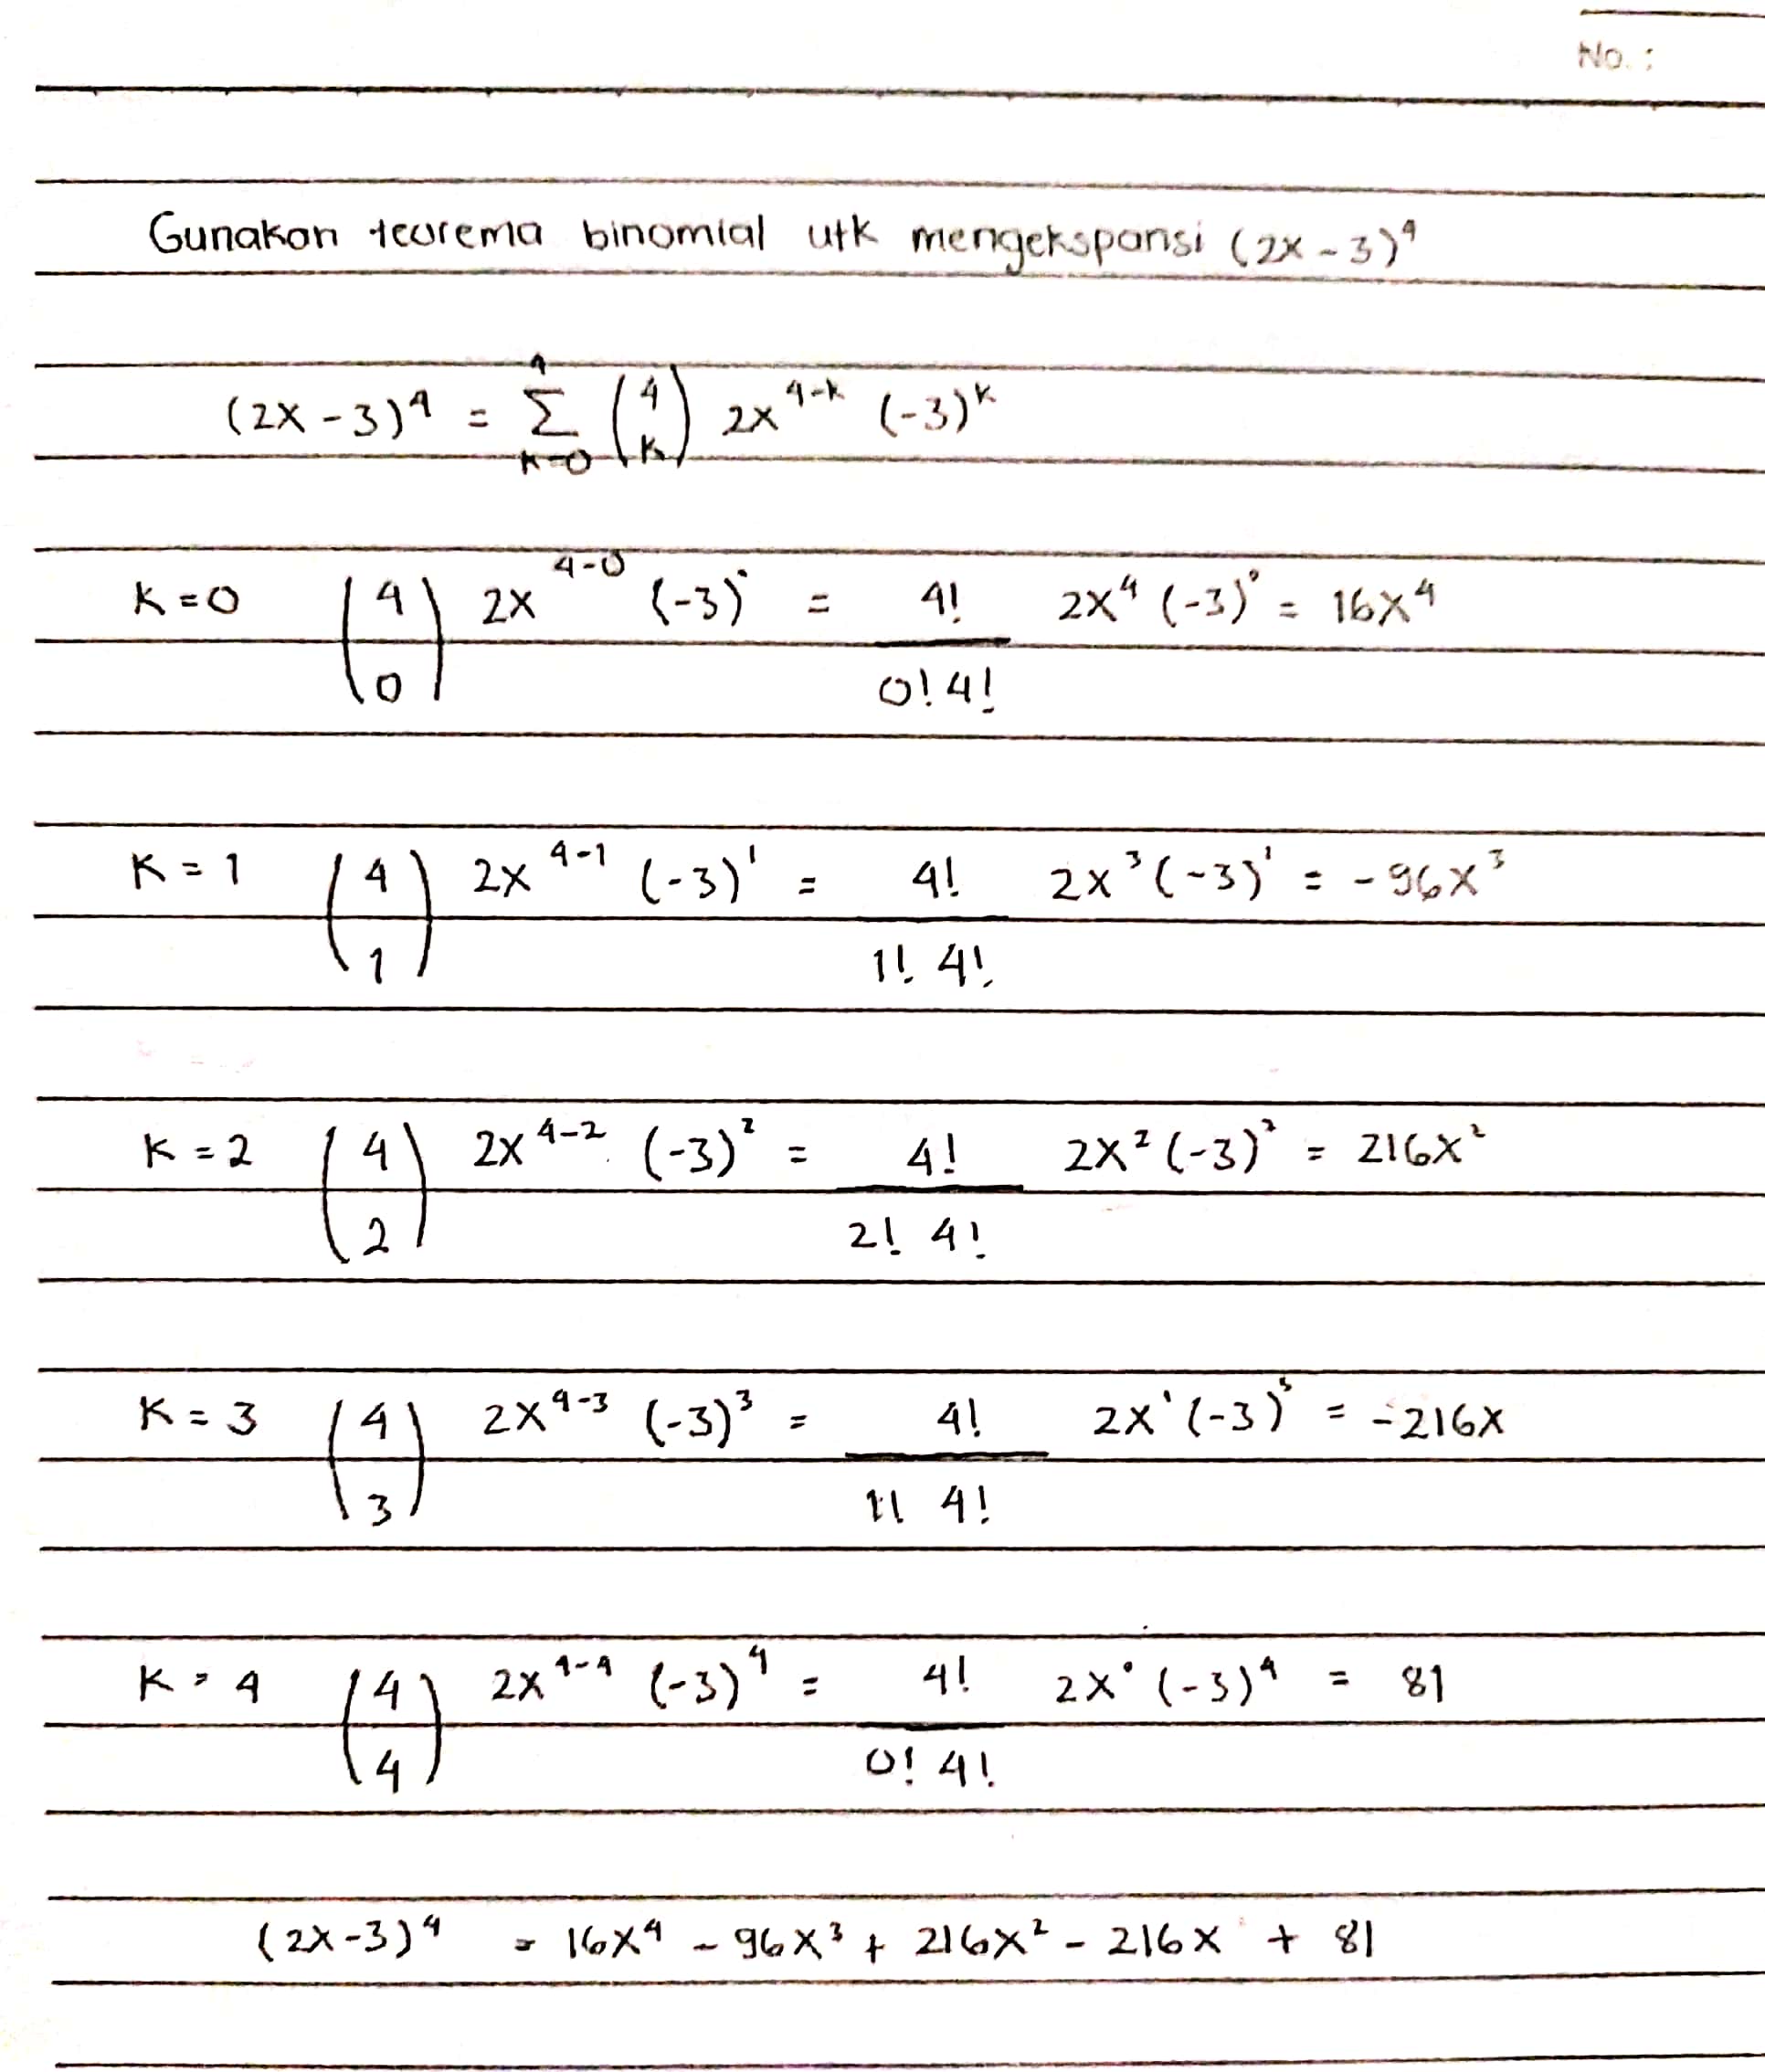 No. :
Gunakan teorema binomial utk mengekspansi (2x - 3)⁴
(2x - 3)⁴ = Σₖ₌₀⁴ (4 k) 2x⁴⁻ᵏ (-3)ᵏ
K = 0 (4 0) 2x⁴⁻⁰ (-3)⁰ = 4! / 0! 4! 2x⁴ (-3)⁰ = 16x⁴
K = 1 (4 1) 2x⁴⁻¹ (-3)¹ = 4! / 1! 4! 2x³ (-3)¹ = - 96x³
K = 2 (4 2) 2x⁴⁻² (-3)² = 4! / 2! 4! 2x² (-3)² = 216x²
K = 3 (4 3) 2x⁴⁻³ (-3)³ = 4! / 1! 4! 2x¹ (-3)³ = -216x
K = 4 (4 4) 2x⁴⁻⁴ (-3)⁴ = 4! / 0! 4! 2x⁰ (-3)⁴ = 81
(2x - 3)⁴ = 16x⁴ - 96x³ + 216x² - 216x + 81